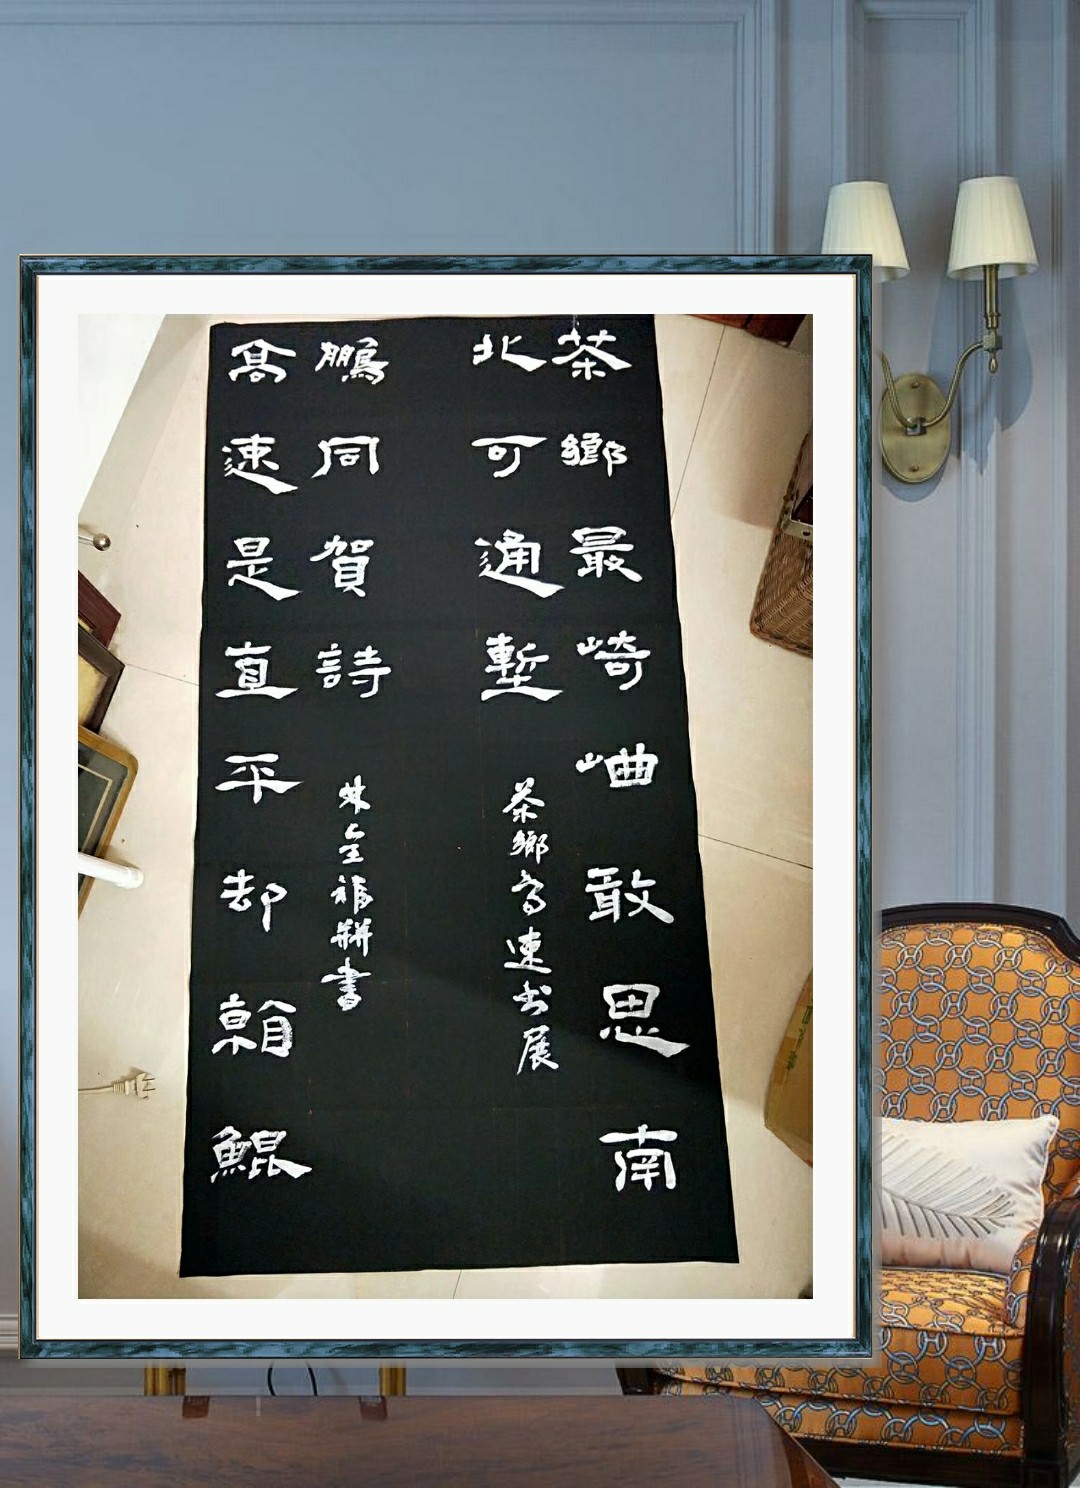 茶鄉最崎敢思南
北可通塹
茶鄉高速书展
髙速是直平却鯤
鵬同賀詩
林書